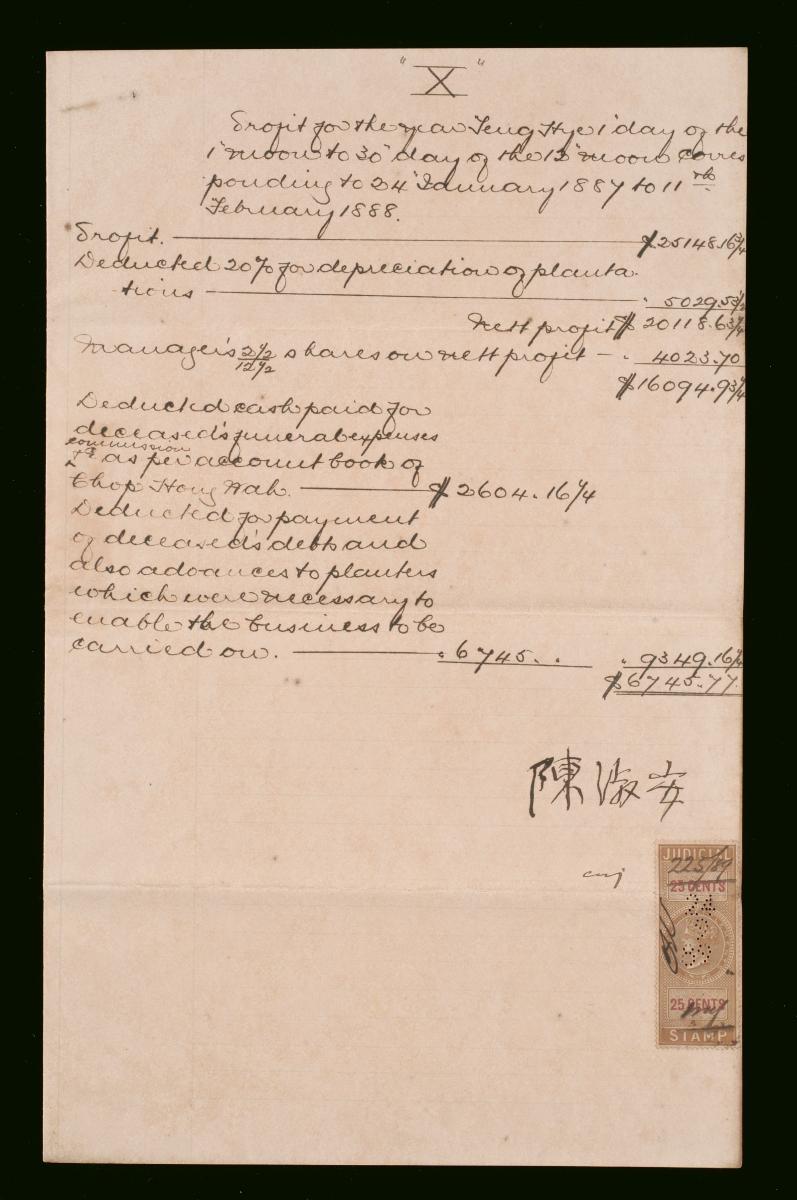 "X"
Profit for the year Teng Hye 1st day of the
1st moon to 30th day of the 12th moon corres
ponding to 24th January 1887 to 11th
February 1888.
Profit. $25148.16¾
Deducted 20% for depreciation of planta
tions " 5029.53½
Nett profit $20118.63¼
Manager's 2½/12½ shares on nett profit – " 4023.70
$16094.93¼
Deducted cash paid for
deceased's funeral expenses
commission
&c as per account book of
Chop Hong Wah. $2604.16¼
Deducted for payment
of deceased's debts and
also advances to planters
which were necessary to
enable the business to be
carried on. " 6745. " " 9349.16¼
$6745.77
陳淑安
JUDICIAL
225/89
25 CENTS
24
9
99
25 CENTS
STAMP